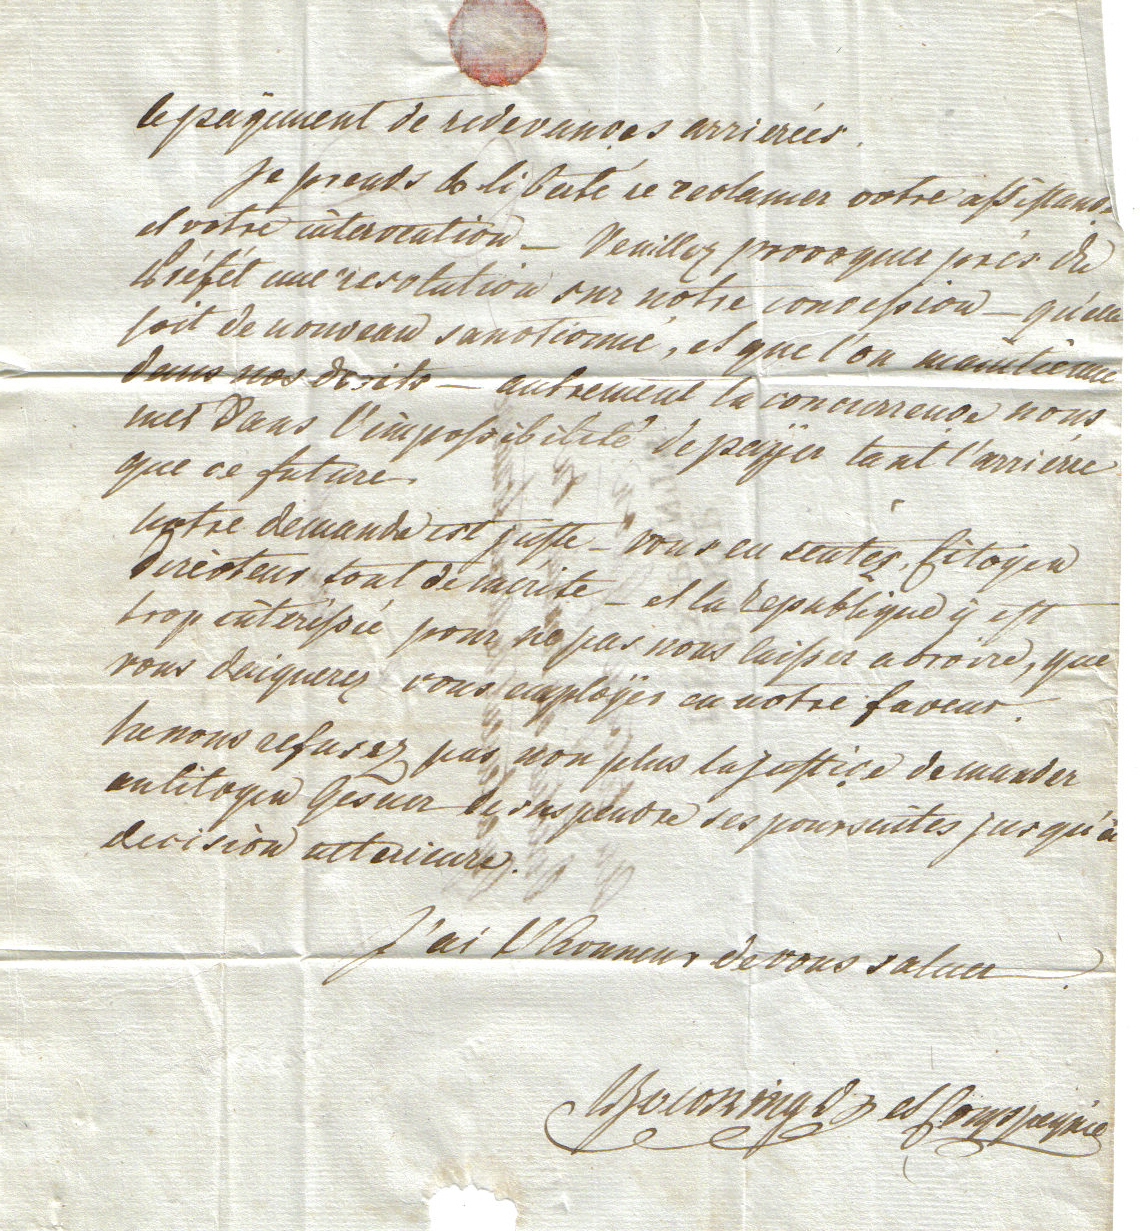 le payement de redevances arrierées.
Je prends la liberté de reclamer votre assistance
et votre intervention — Veuillez provoquer près du
Préfét une resolution sur notre concession — qu'elle
soit de nouveau sanctionné, et que l'on maintienne
dans nos droits — autrement la concurrence nous
met dans l'impossibilité de payer tant l'arriéré
que ce future.
notre demande est juste — vous en sentés, Citoyen
Directeur, tout le merite — et la republique y est
trop intéressée pour ne pas nous laisser à croire, que
vous daignerez vous employer en notre faveur.
Ne nous refusez pas non plus la justice de mander
au citoyen Gesner de suspendre ses poursuites jusqu'à
decision ulterieure.
J'ai l'honneur de vous saluer
et Compagnie